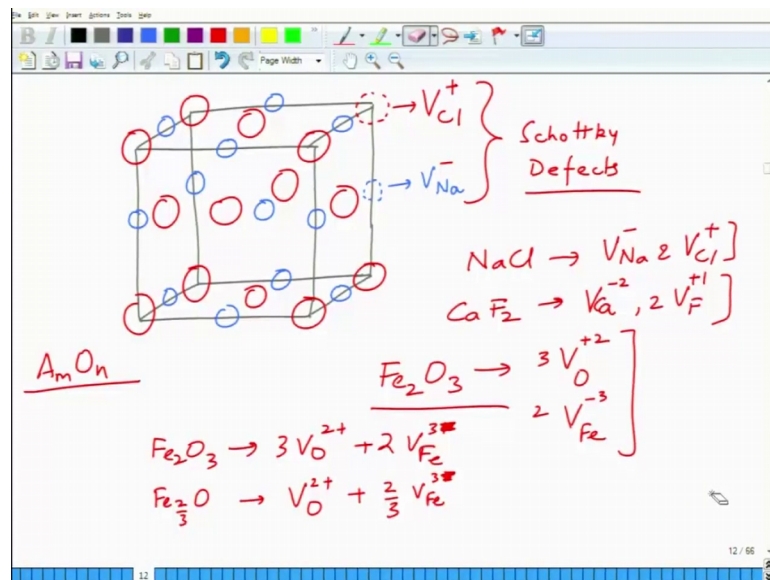 File Edit View Insert Actions Tools Help
B I
Page Width
→ V_Cl^+
→ V_Na^-
Schottky
Defects
NaCl → V_Na^- & V_Cl^+
CaF₂ → V_Ca^-2, 2 V_F^+1
A_mO_n
Fe₂O₃ → 3 V_O^+2
2 V_Fe^-3
Fe₂O₃ → 3 V_O^2+ + 2 V_Fe^3-
Fe_2/3 O → V_O^2+ + 2/3 V_Fe^3-
12 / 66
12